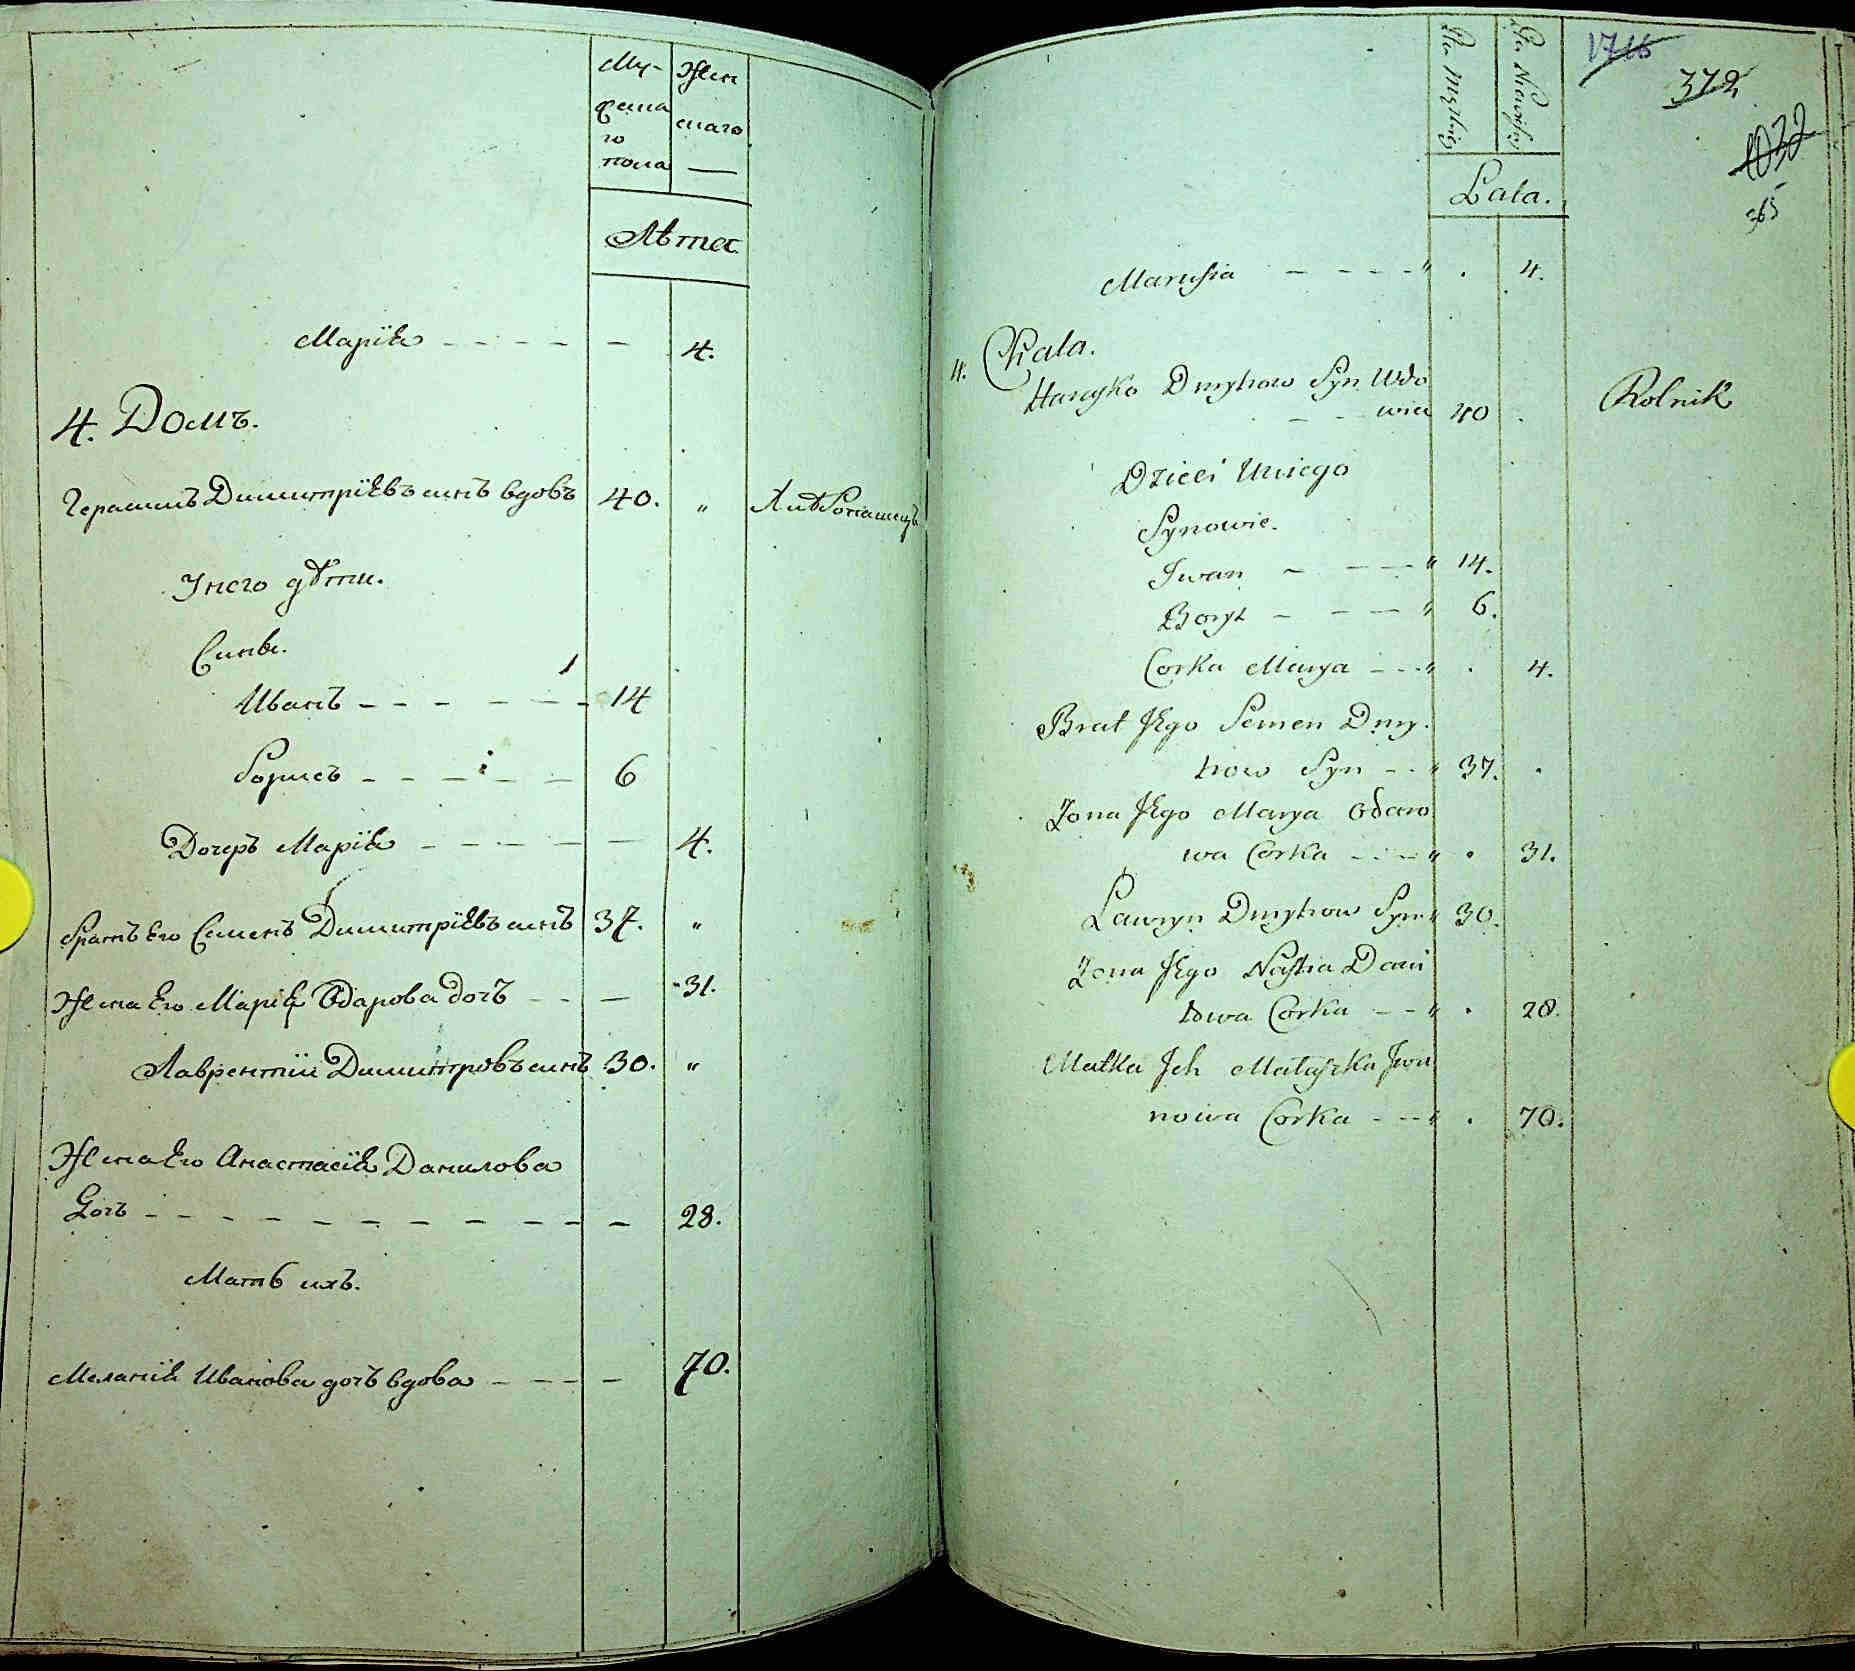 Му-
жска
го
пола
Жен
скаго
Лѣта
Марія - - - - - — 4.
4. Домъ.
Герасимъ Димитріевъ сынъ вдовъ 40. " Хлѣбопашецъ
У него дѣти.
Сыны.
Иванъ - - - - - - 14
Борисъ - - - - - 6
Дочерь Марія - - - - - — 4.
Братъ Его Семенъ Димитріевъ сынъ 37. "
Жена Его Марія Одарова дочь - - — 31.
Лаврентій Димитровъ сынъ 30. "
Жена Его Анастасія Данилова
дочь - - - - - - - - - - - — 28.
Мать ихъ.
Меланія Иванова дочь вдова - - - - — 70.
Płci Męzkiej
Płci Niewiesciej
1716
372
1032
365
Lata.
Marusia - - - - " . 4.
4. Chata.
Harasko Dmytrow Syn Wdo
- - wiec 40 . Rolnik
Dzieci Uniego
Synowie.
Iwan - - - - " 14.
Borys - - - - " 6.
Corka Marya - - - " . 4.
Brat Jego Semen Dmy-
trow Syn - - " 37. .
Zona Jego Marya Odaro
wa Corka - - - " . 31.
Lawryn Dmytrow Syn " 30.
Zona Jego Nastia Dani
łowa Corka - - " . 28.
Matka Ich Małaszka Iwa
nowa Corka - - - " . 70.